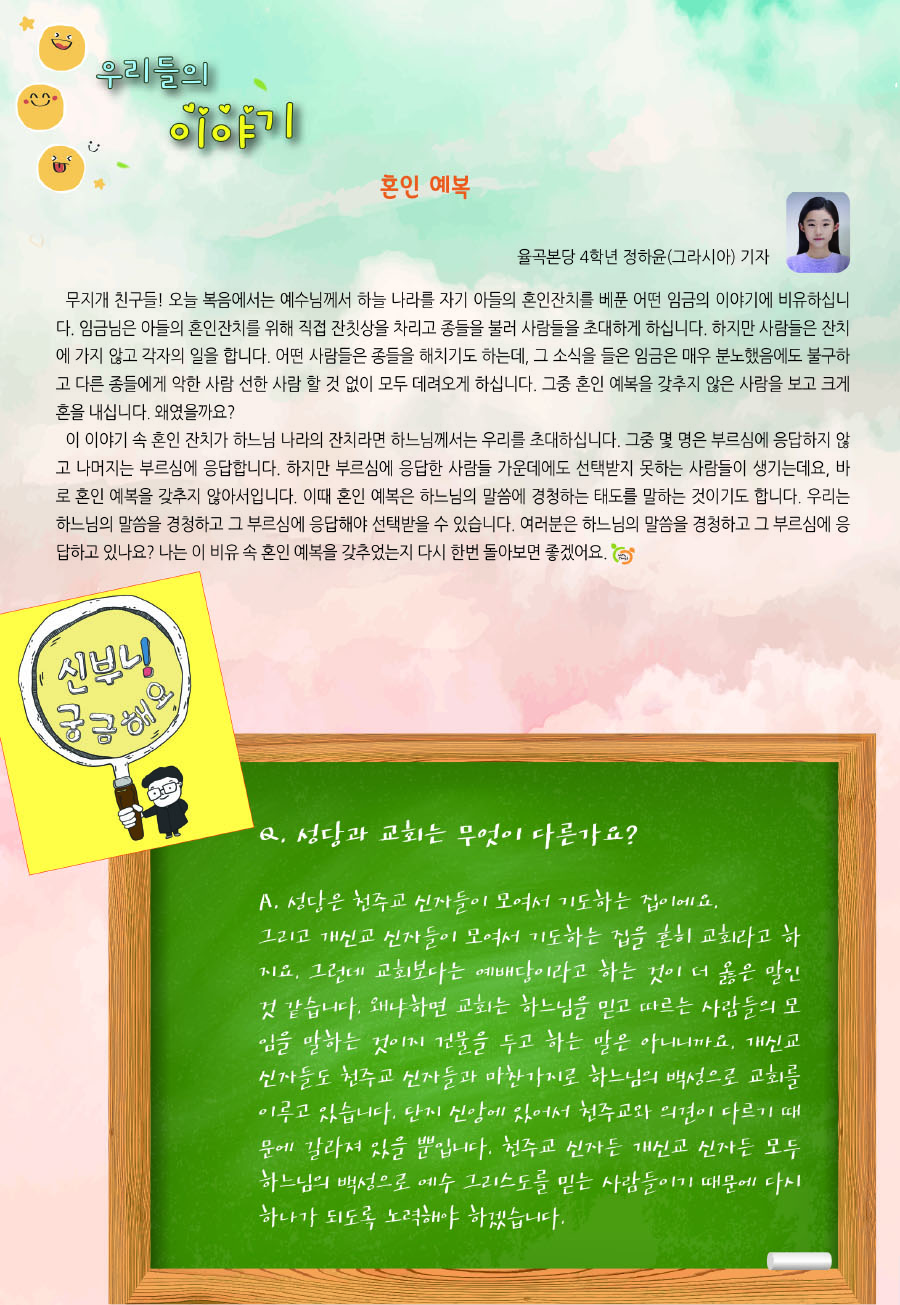 우리들의
이야기
혼인 예복
율곡본당 4학년 정하윤(그라시아) 기자
무지개 친구들! 오늘 복음에서는 예수님께서 하늘 나라를 자기 아들의 혼인잔치를 베푼 어떤 임금의 이야기에 비유하십니
다. 임금님은 아들의 혼인잔치를 위해 직접 잔칫상을 차리고 종들을 불러 사람들을 초대하게 하십니다. 하지만 사람들은 잔치
에 가지 않고 각자의 일을 합니다. 어떤 사람들은 종들을 해치기도 하는데, 그 소식을 들은 임금은 매우 분노했음에도 불구하
고 다른 종들에게 악한 사람 선한 사람 할 것 없이 모두 데려오게 하십니다. 그중 혼인 예복을 갖추지 않은 사람을 보고 크게
혼을 내십니다. 왜였을까요?
이 이야기 속 혼인 잔치가 하느님 나라의 잔치라면 하느님께서는 우리를 초대하십니다. 그중 몇 명은 부르심에 응답하지 않
고 나머지는 부르심에 응답합니다. 하지만 부르심에 응답한 사람들 가운데에도 선택받지 못하는 사람들이 생기는데요, 바
로 혼인 예복을 갖추지 않아서입니다. 이때 혼인 예복은 하느님의 말씀에 경청하는 태도를 말하는 것이기도 합니다. 우리는
하느님의 말씀을 경청하고 그 부르심에 응답해야 선택받을 수 있습니다. 여러분은 하느님의 말씀을 경청하고 그 부르심에 응
답하고 있나요? 나는 이 비유 속 혼인 예복을 갖추었는지 다시 한번 돌아보면 좋겠어요.
신부님
궁금해요
Q. 성당과 교회는 무엇이 다른가요?
A. 성당은 천주교 신자들이 모여서 기도하는 집이에요.
그리고 개신교 신자들이 모여서 기도하는 집을 흔히 교회라고 하
지요. 그런데 교회보다는 예배당이라고 하는 것이 더 옳은 말인
것 같습니다. 왜냐하면 교회는 하느님을 믿고 따르는 사람들의 모
임을 말하는 것이지 건물을 두고 하는 말은 아니니까요. 개신교
신자들도 천주교 신자들과 마찬가지로 하느님의 백성으로 교회를
이루고 있습니다. 단지 신앙에 있어서 천주교와 의견이 다르기 때
문에 갈라져 있을 뿐입니다. 천주교 신자든 개신교 신자든 모두
하느님의 백성으로 예수 그리스도를 믿는 사람들이기 때문에 다시
하나가 되도록 노력해야 하겠습니다.